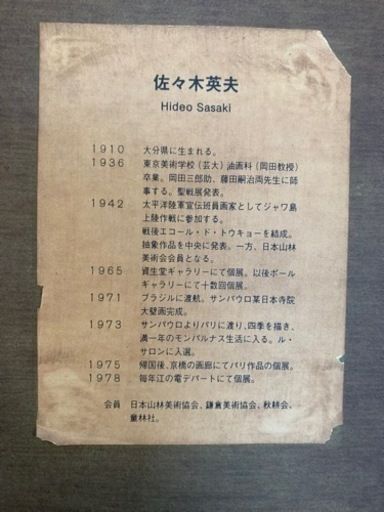 佐々木英夫
Hideo Sasaki
1910 大分県に生まれる。
1936 東京美術学校(芸大)油画科(岡田教授)
卒業。岡田三郎助、藤田嗣治両先生に師
事する。聖戦展発表。
1942 太平洋陸軍宣伝班員画家としてジャワ島
上陸作戦に参加する。
戦後エコール・ド・トウキョーを結成。
抽象作品を中央に発表。一方、日本山林
美術会会員となる。
1965 資生堂ギャラリーにて個展。以後ポール
ギャラリーにて十数回個展。
1971 ブラジルに渡航。サンパウロ某日本寺院
大壁画完成。
1973 サンパウロよりパリに渡り、四季を描き、
満一年のモンパルナス生活に入る。ル・
サロンに入選。
1975 帰国後、京橋の画廊にてパリ作品の個展。
1978 毎年江の電デパートにて個展。
会員 日本山林美術協会、鎌倉美術協会、秋耕会、
童林社。